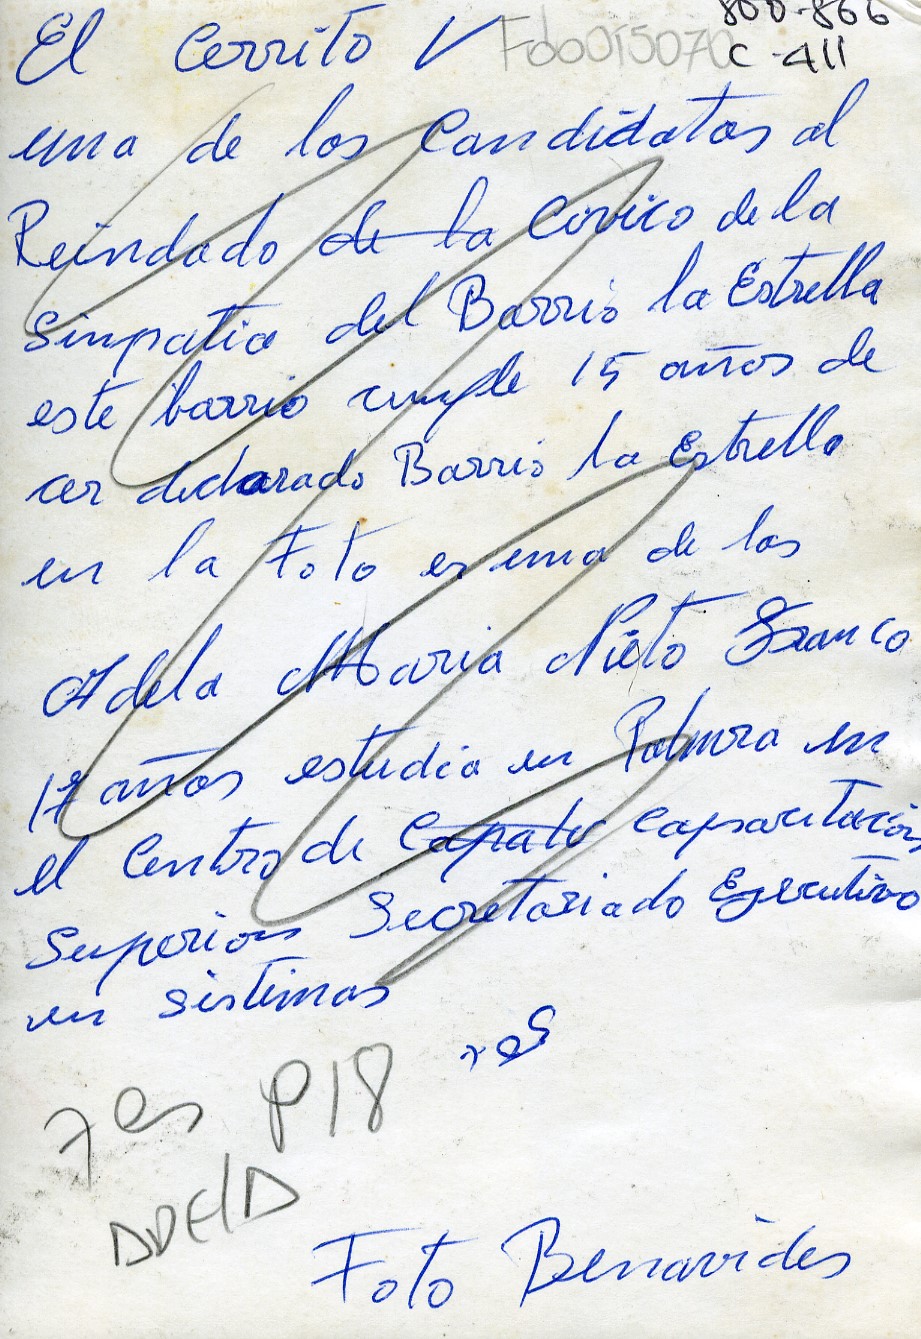 800-866
C-411
Fdo015070
El Cerrito V
una de los Candidatas al
Reindado de la Civico de la
Sinpatia del Barrio la Estrella
este barrio cumple 15 años de
cer declarado Barrio la Estrella
en la Foto es una de las
Adela Maria Nieto Franco
17 años estudia en Palmira en
el Centro de Capatc capacitación
Superior Secretariado Ejecutivo
en sistemas
P18
ADELA
Foto Benavides